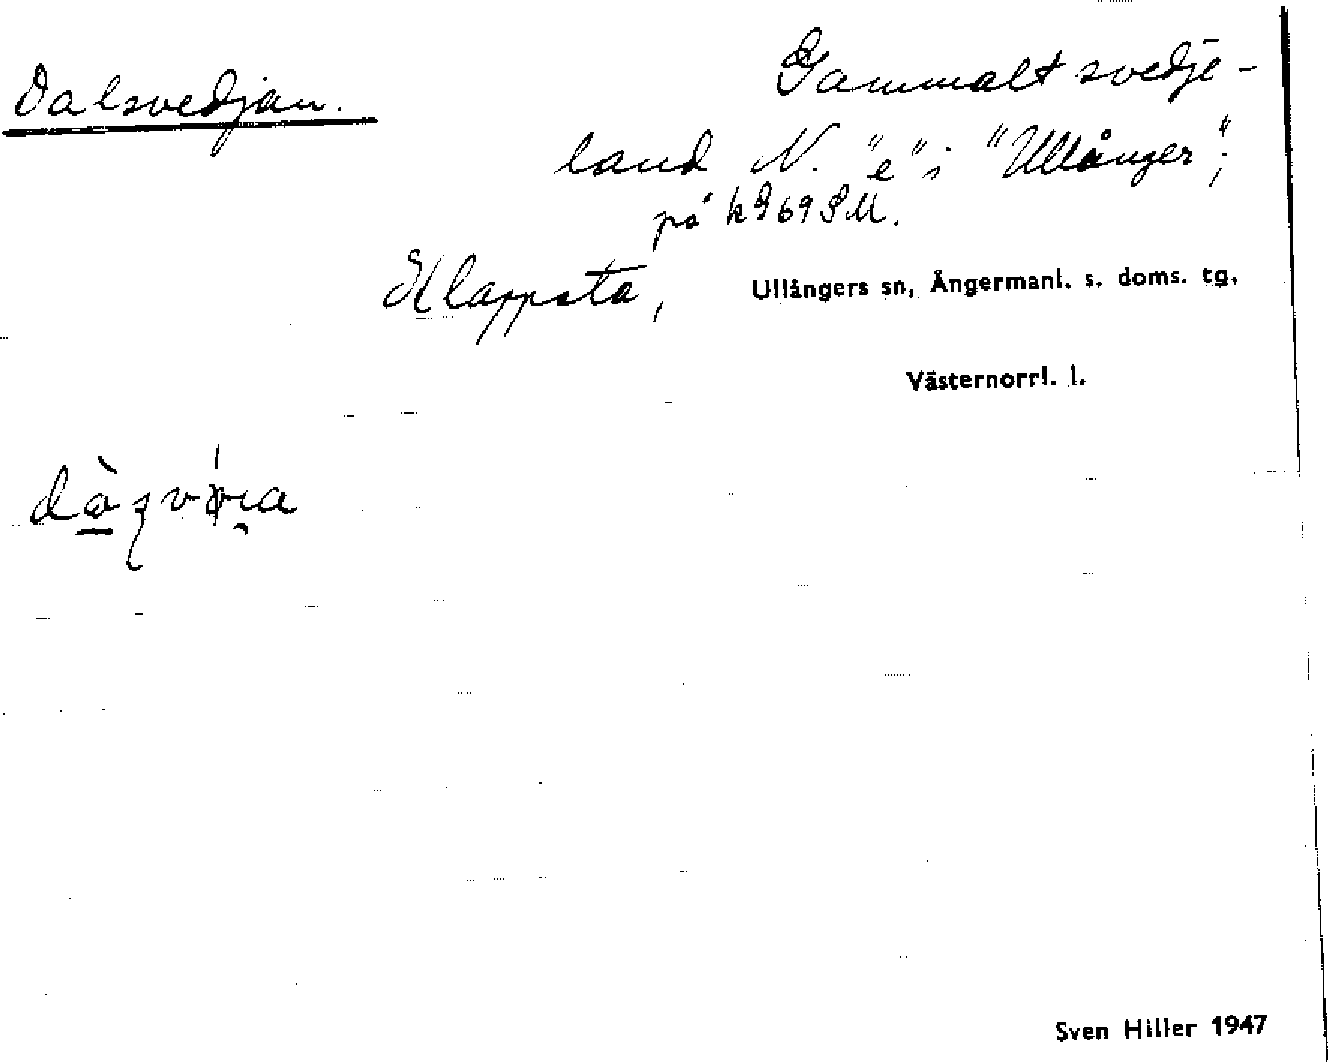 Dalsvedjan.
Gammalt svedje-
land N. "e" i "Ullånger";
på k969SM.
Klappsta,
Ullångers sn, Ångermanl. s. doms. tg.
Västernorrl. l.
Sven Hiller 1947